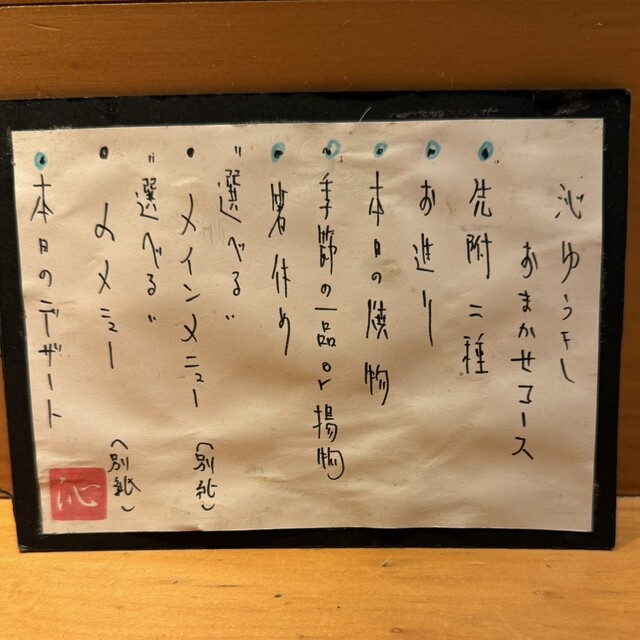 沁ゆうすし
おまかせコース
• 先附二種
• お造り
• 本日の焼物
• 季節の一品or揚物
• 箸休め
"選べる"
• メインメニュー (別紙)
"選べる"
• 〆メニュー (別紙)
• 本日のデザート
沁